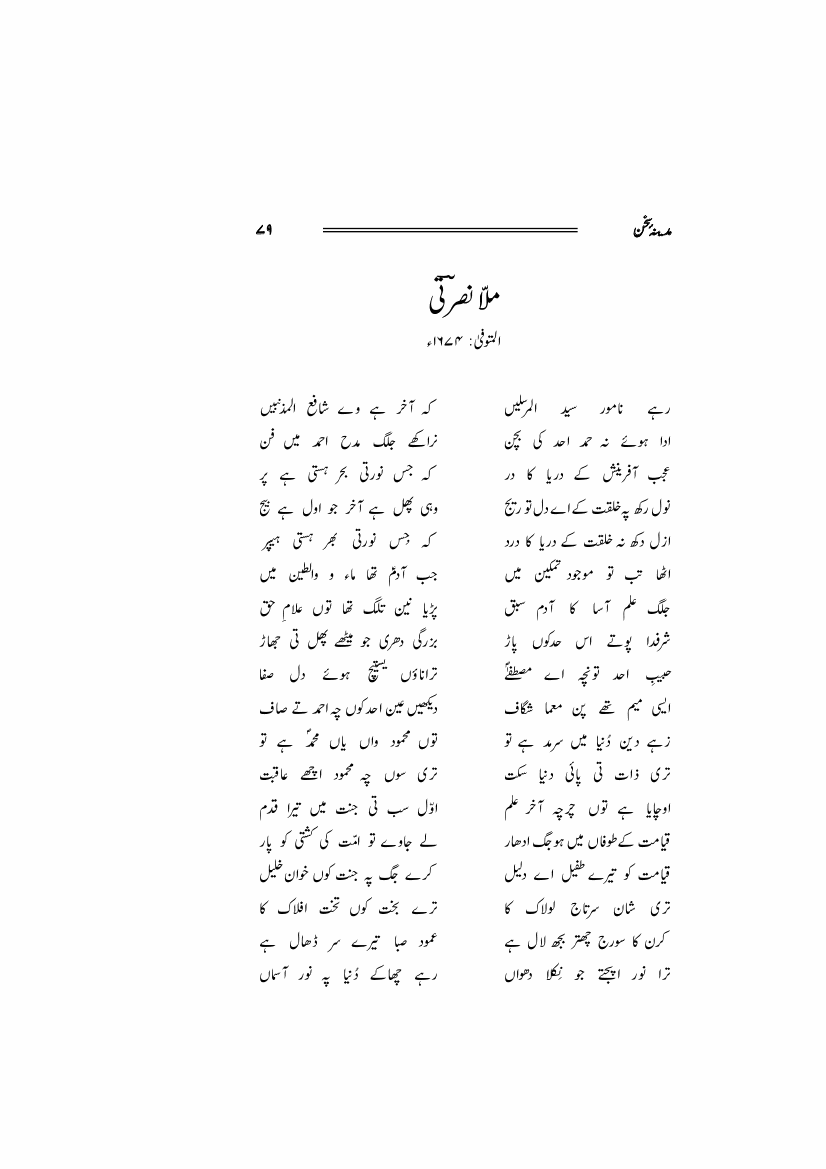 مدینۂ سخن ۷۹
ملّا نصرتی
المتوفیٰ: ۱۶۷۴ء
رہے نامور سید المرسلیں کہ آخر ہے وے شافع المذنبیں
ادا ہوئے نہ حمد احد کی بچن نراکھے جلگ مدح احمد میں فن
عجب آفرینش کے دریا کا در کہ جس نورتی بحر ہستی ہے پر
نول رکھ پہ خلقت کے اے دل تو ریج وہی پھل ہے آخر جو اول ہے بیج
ازل دکھ نہ خلقت کے دریا کا درد کہ جِس نورتی بھر ہستی
اٹھا تب تو موجود تمکین میں جب آدمؑ تھا ماء و والطین میں
جلگ علم آسا کا آدم سبق پڑیا نین تلگ تھا توں علامِ حق
شرفدا پوتے اس حدکوں پاڑ بزرگی دھری جو میٹھے پھل تی جھاڑ
حبیبِ احد تونچہ اے مصطفےؐ تراناؤں ہوئے دل صفا
ایسی میم تھے پن معما شگاف دیکھیں عین احد کوں چہ احمد تے صاف
زہے دین دُنیا میں سرمد ہے تو توں محمود واں یاں محمدؐ ہے تو
تری ذات تی پائی دنیا سکت تری سوں چہ محمود اچھے عاقبت
اوچایا ہے توں چرچہ آخر علم اوّل سب تی جنت میں تیرا قدم
قیامت کے طوفاں میں ہو جگ ادھار لے جاوے تو امّت کی کشتی کو پار
قیامت کو تیرے طفیل اے دلیل کرے جگ پہ جنت کوں خوان خلیل
تری شان سرتاج لولاک کا ترے بخت کوں تخت افلاک کا
کرن کا سورج چھتر بجھ لال ہے عمود صبا تیرے سر ڈھال ہے
ترا نور اپجتے جو نِکلا دھواں رہے چھاکے دُنیا پہ نور آسماں